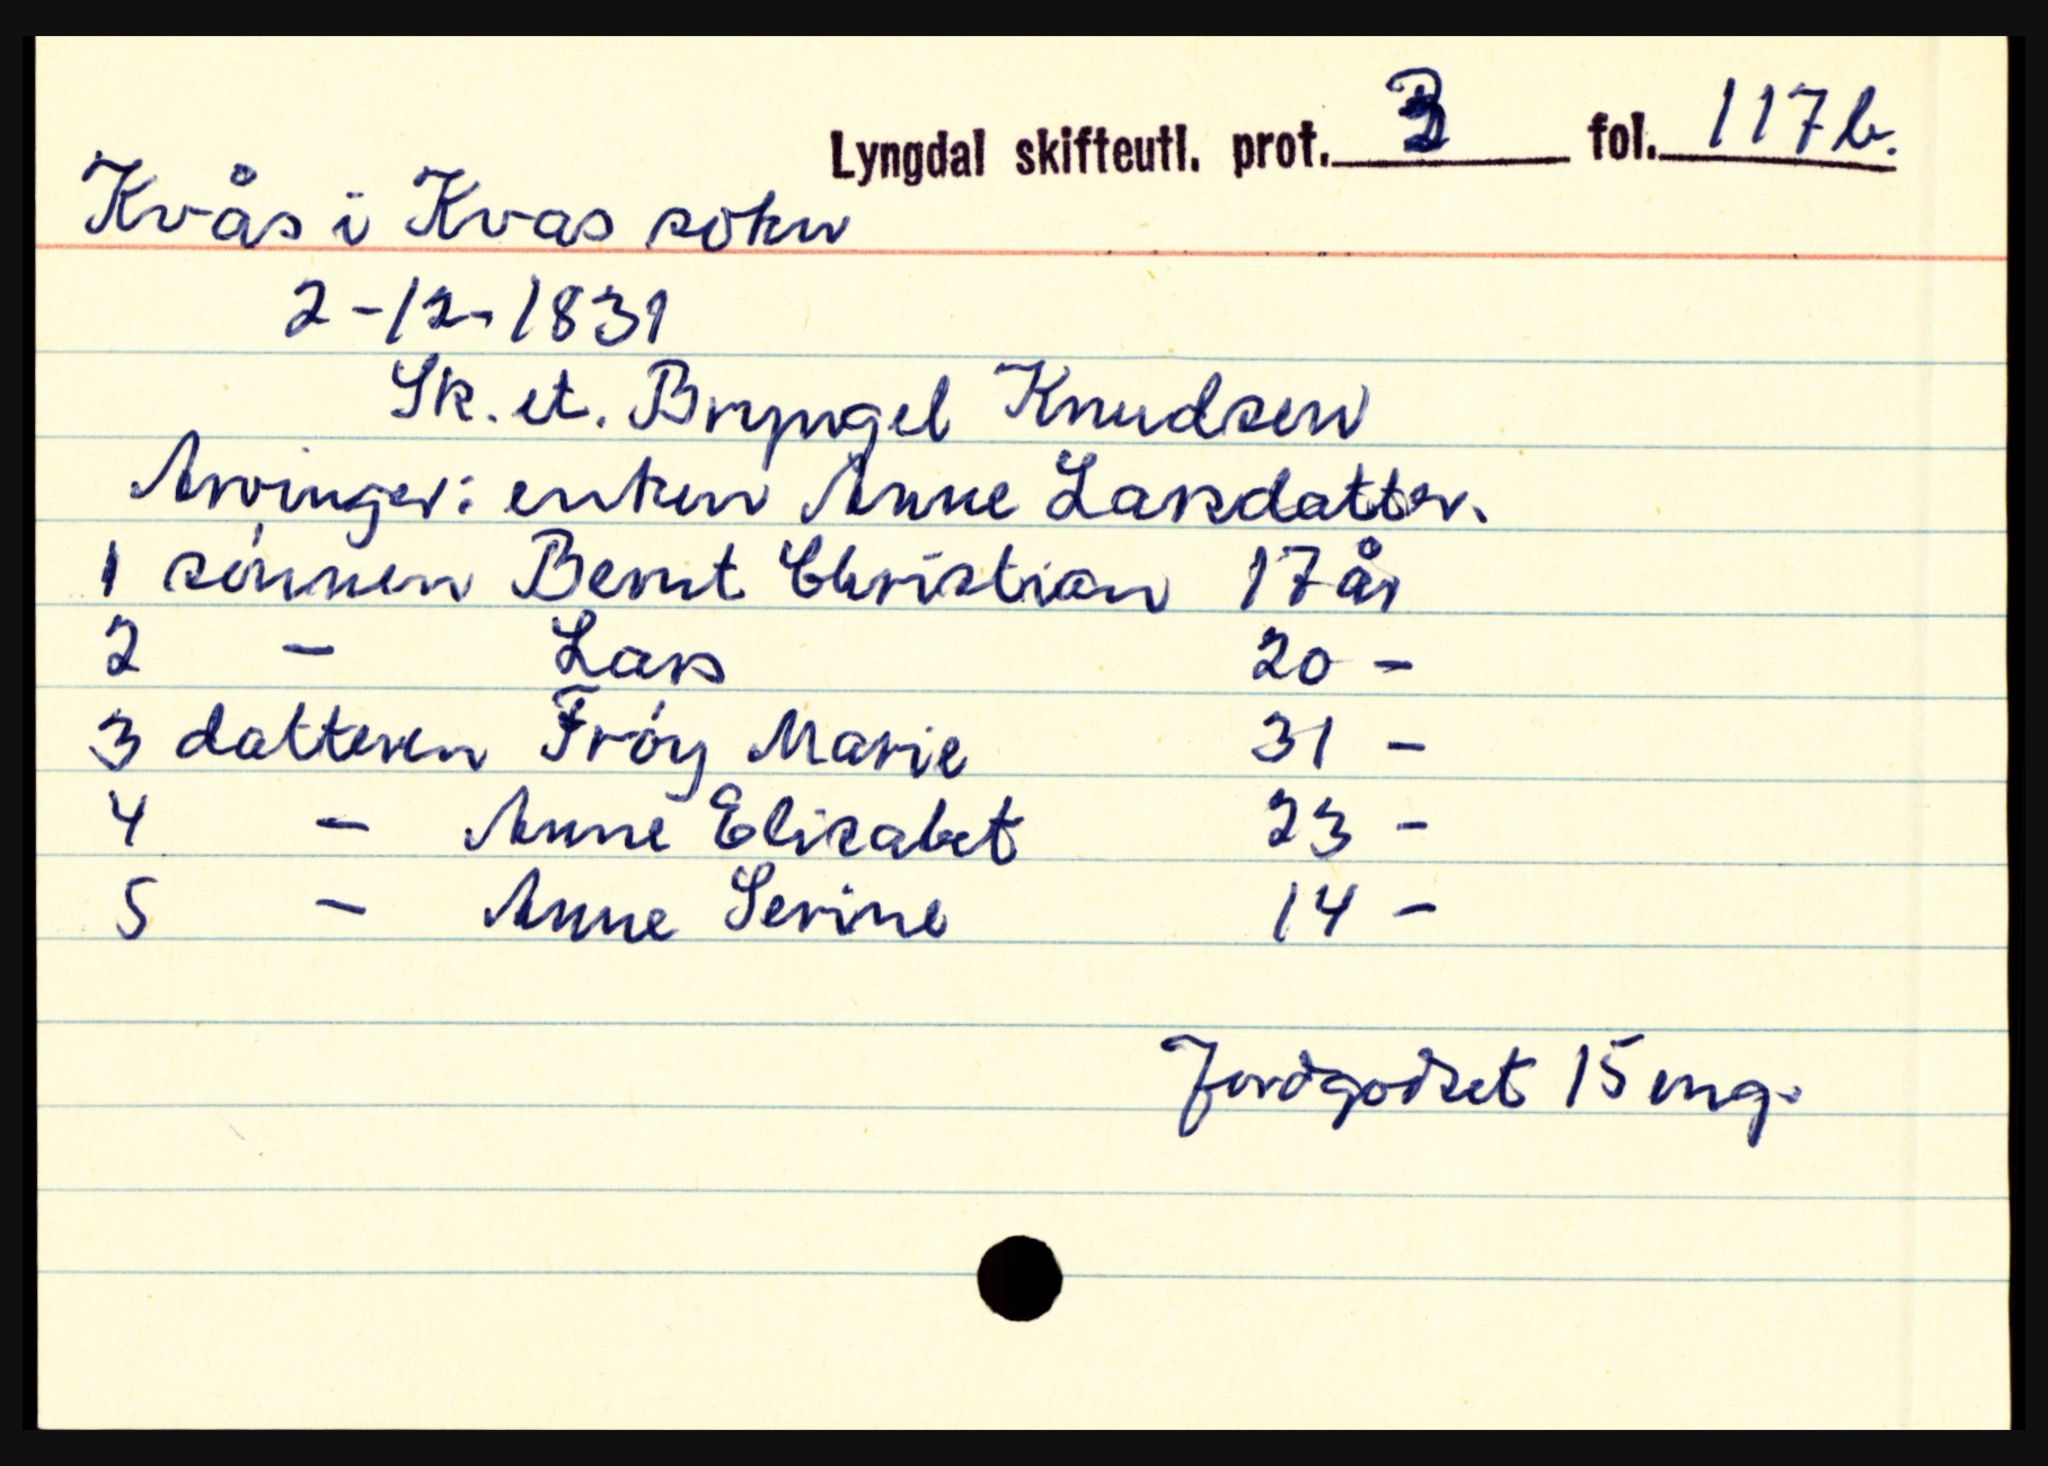 Lyngdal skifteutl. prot. 3 fol. 117 b.
Kvås i Kvas sokn
2-12-1831
Sk. et. Bryngel Knudsen
Arvinger: enken Anne Larsdatter.
1 sønnen Bernt Christian 17 år
2 - Lars 20 -
3 datteren Frøy Marie 31 -
4 - Anne Elisabet 23 -
5 - Anne Serine 14 -
Jordgodset 15 mg.